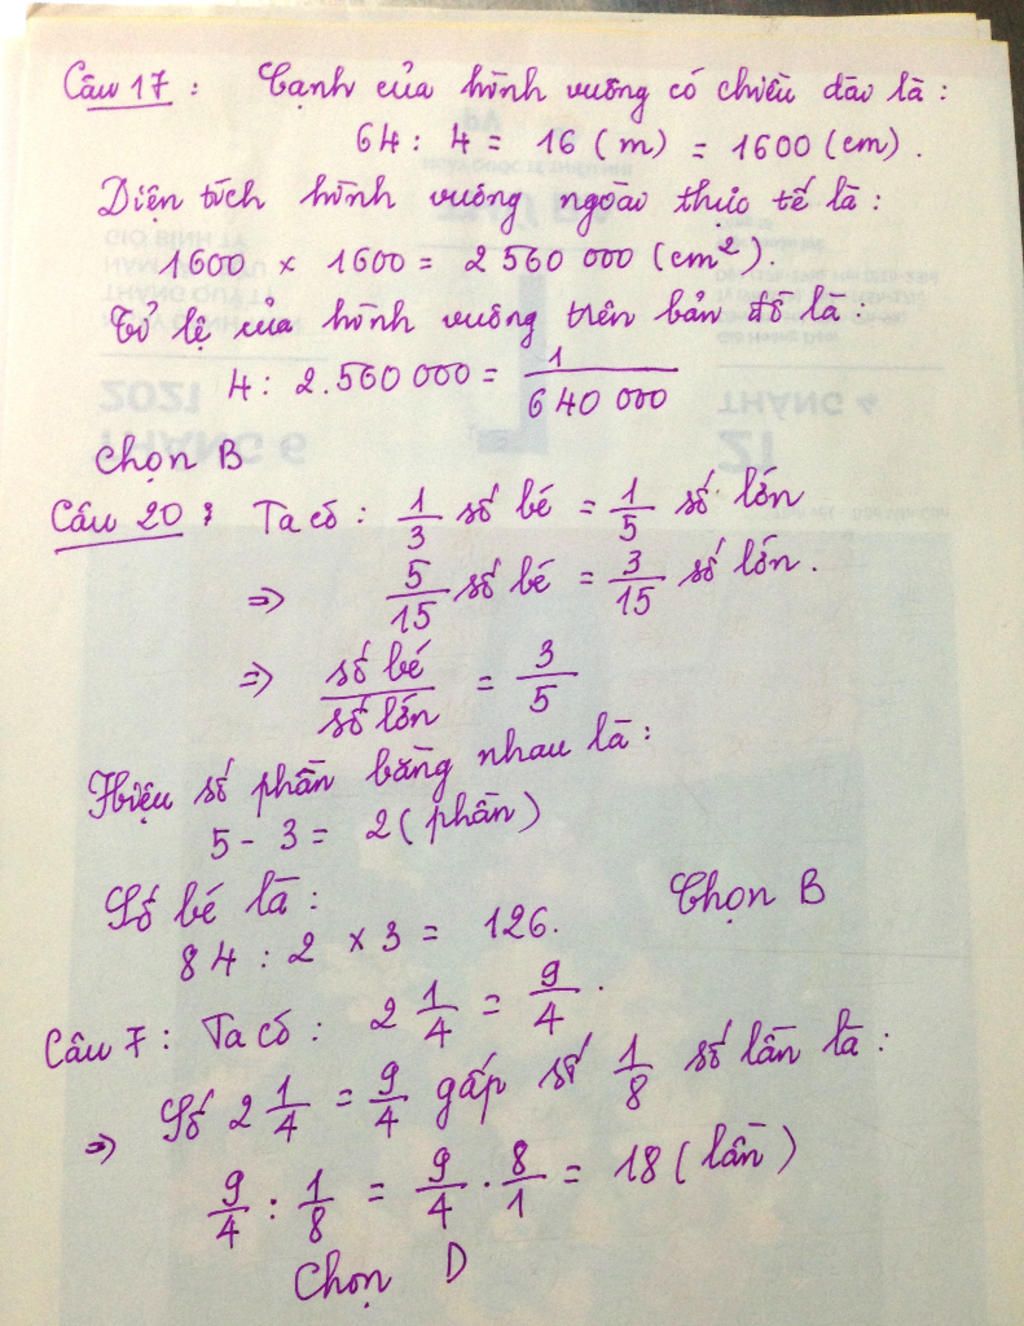 Câu 17 : Cạnh của hình vuông có chiều dài là :
64 : 4 = 16 ( m) = 1600 (cm) .
Diện tích hình vuông ngoài thực tế là :
1600 x 1600 = 2 560 000 (cm²).
Tỉ lệ của hình vuông trên bản đồ là :
4 : 2.560 000 = 1/640 000
Chọn B
Câu 20 : Ta có : 1/3 số bé = 1/5 số lớn
=> 5/15 số bé = 3/15 số lớn .
=> số bé/số lớn = 3/5
Hiệu số phần bằng nhau là :
5 - 3 = 2 ( phần)
Số bé là :
84 : 2 x 3 = 126.
Chọn B
Câu 7 : Ta có : 2 1/4 = 9/4 .
=> Số 2 1/4 = 9/4 gấp số 1/8 số lần là :
9/4 : 1/8 = 9/4 . 8/1 = 18 ( lần)
Chọn D
2021
THÁNG 6
THÁNG 4
21